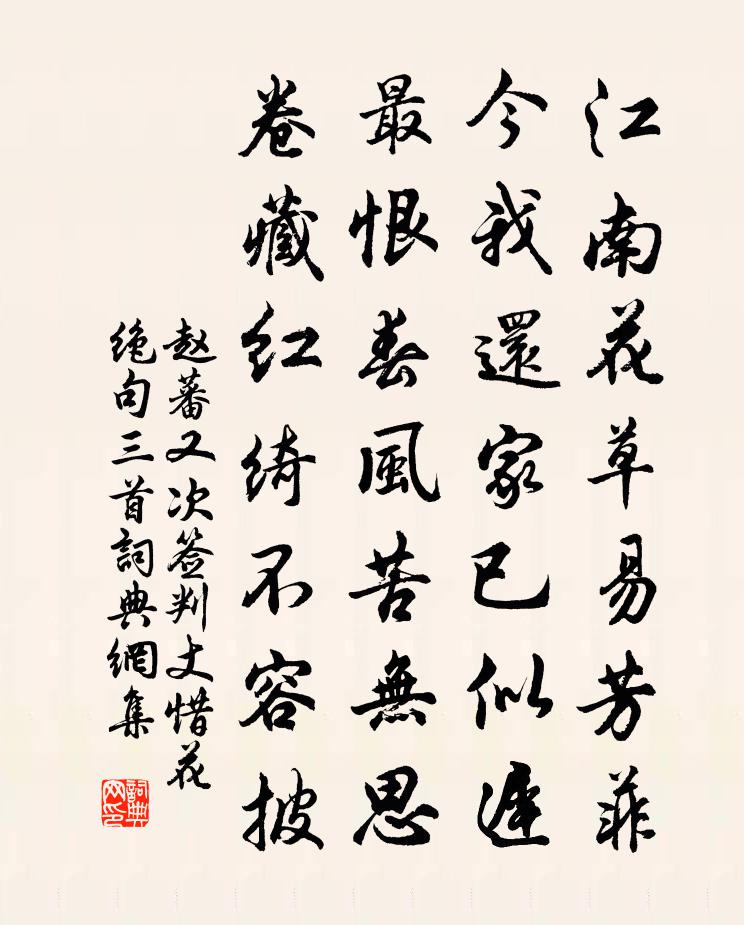 江南花草易芳菲
今我還家已似遲
最恨春風苦無思
卷藏紅綺不容披
赵蕃又次签判丈惜花
绝句三首詞典網集
詞典网印